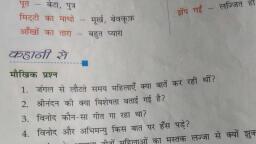 पूत – बेटा, पुत्र
मिट्टी का माधो – मूर्ख, बेवकूफ़
झेंप गईं – लज्जित हो
आँखों का तारा – बहुत प्यारा
कहानी से
मौखिक प्रश्न
1. जंगल से लौटते समय महिलाएँ क्या बातें कर रही थीं?
2. श्रीनंदन की क्या विशेषता बताई गई है?
3. विनोद कौन-सा गीत गा रहा था?
4. विनोद और अभिमन्यु किस बात पर हँस पड़े?
महिलाओं का मस्तक लज्जा से क्यों झुक